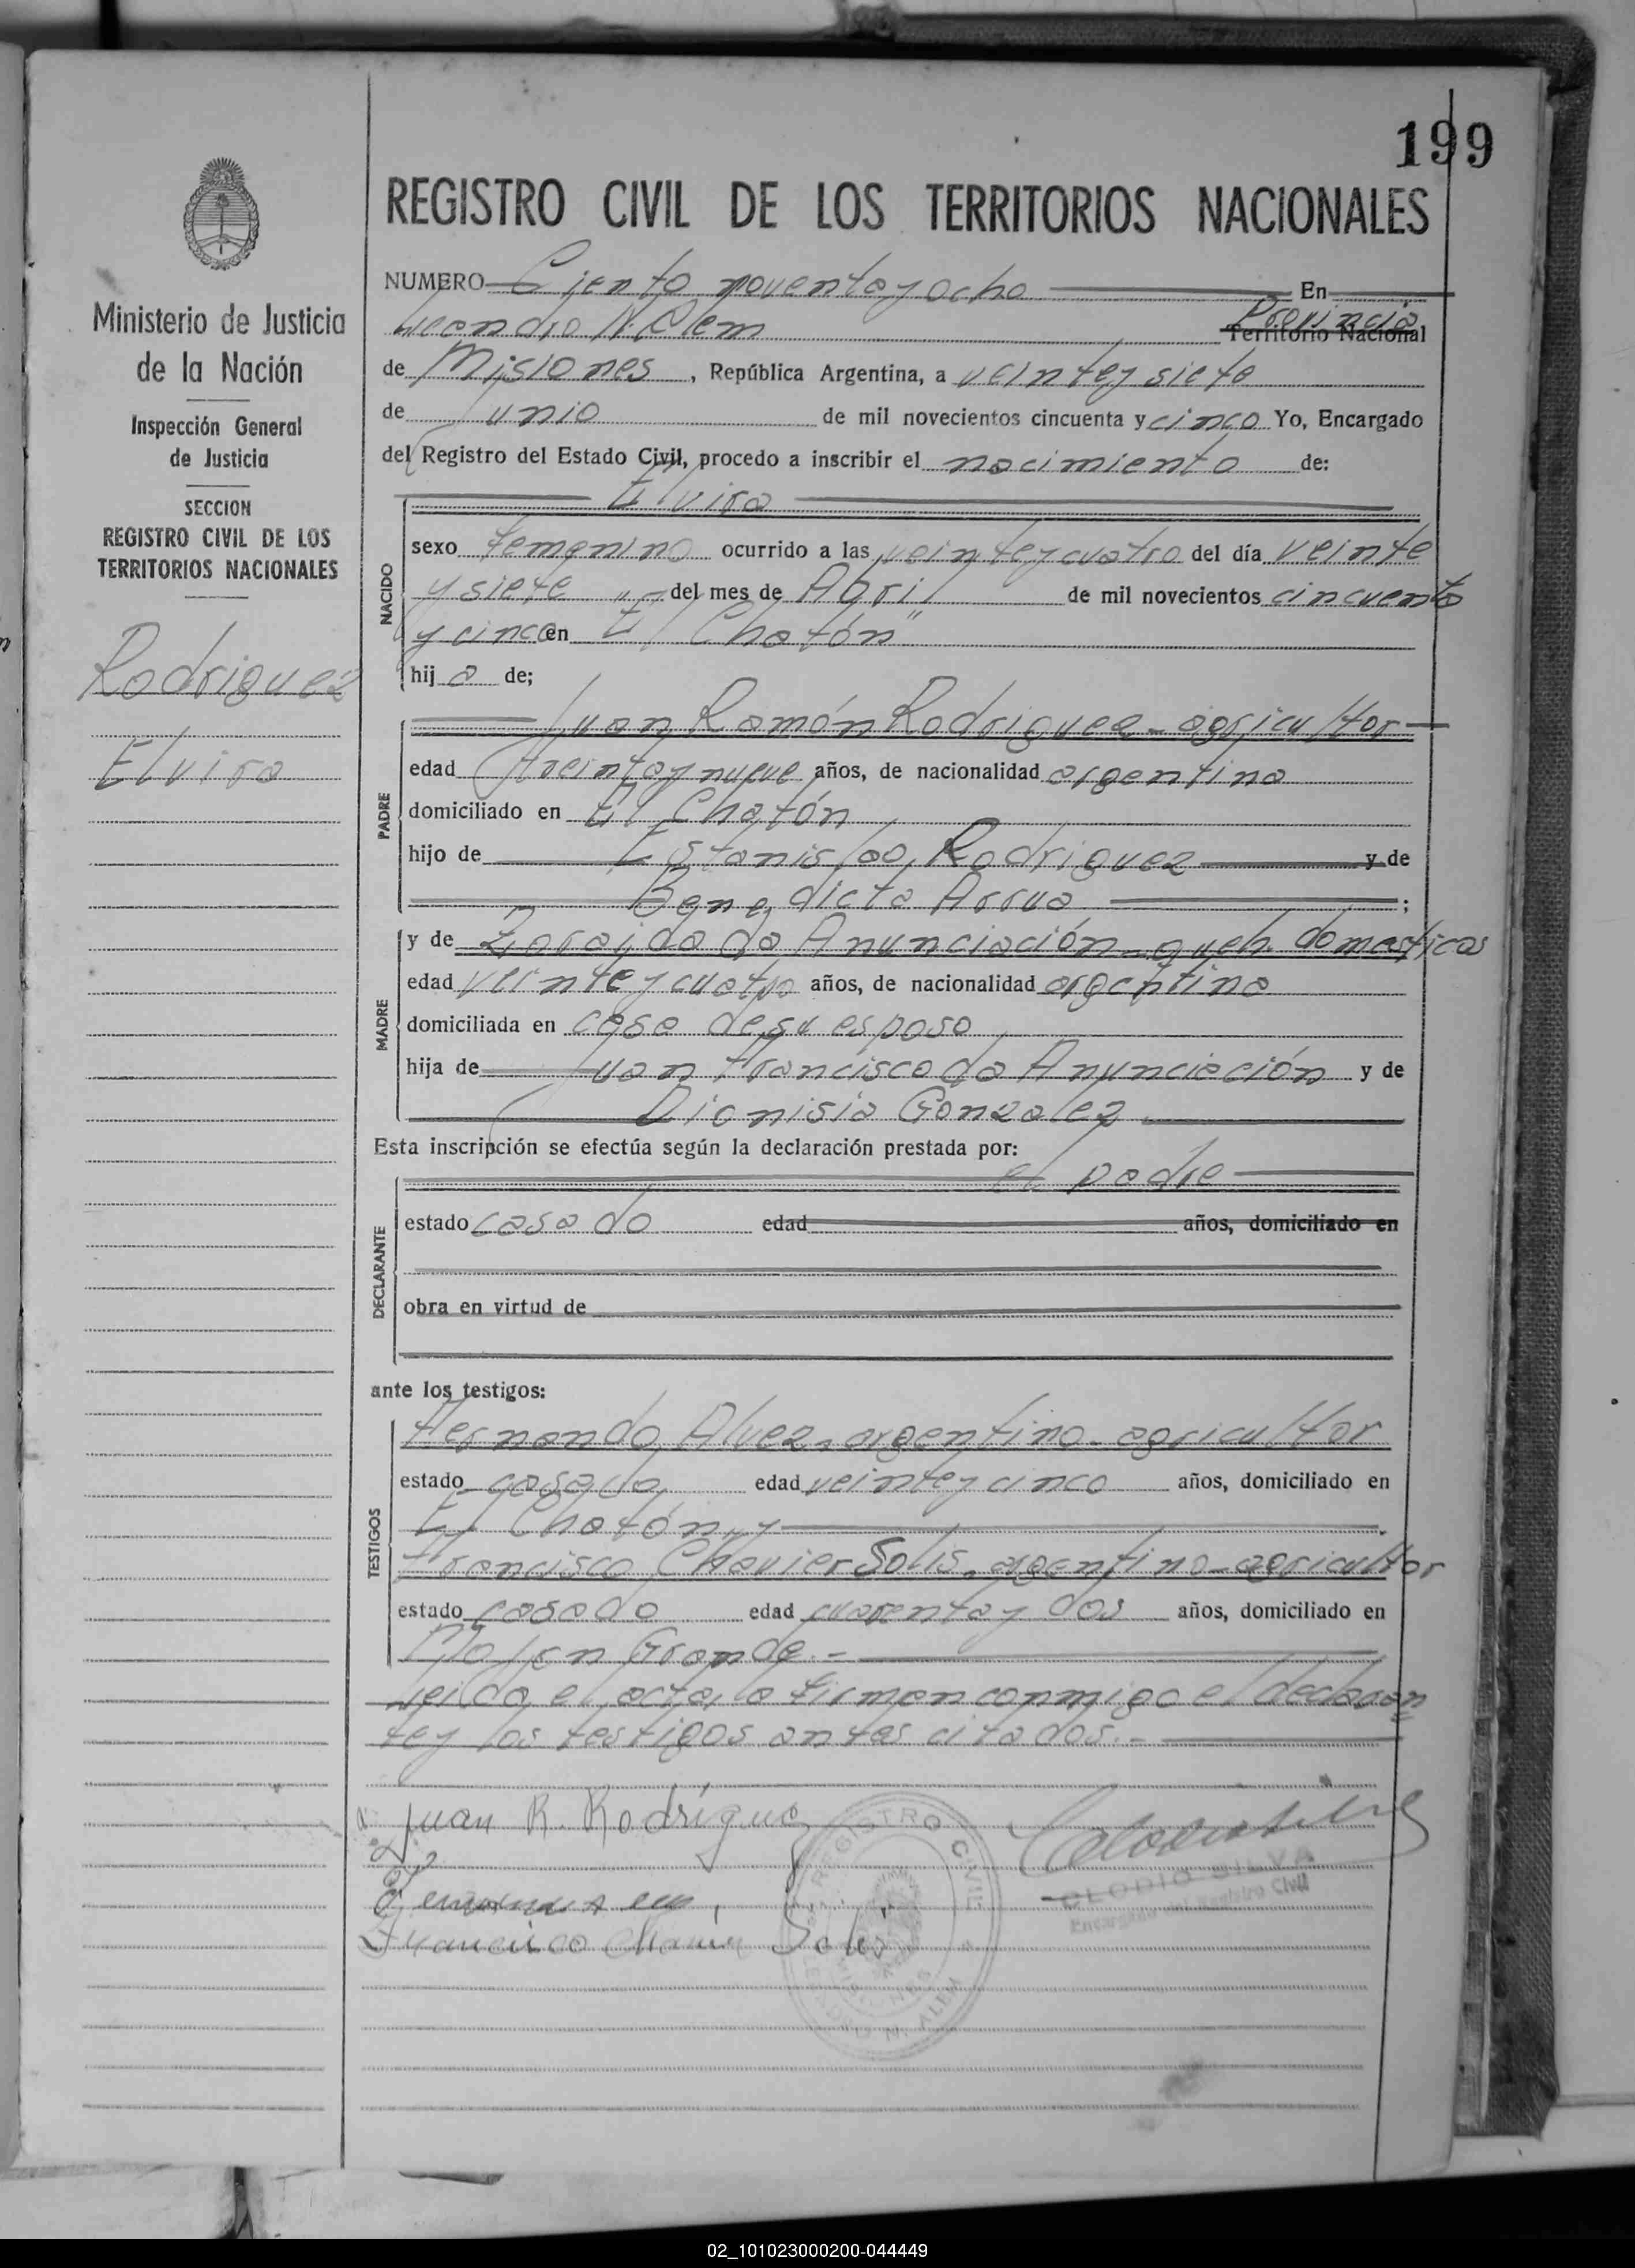 199
REGISTRO CIVIL DE LOS TERRITORIOS NACIONALES
Ministerio de Justicia
de la Nación
Inspección General
de Justicia
SECCION
REGISTRO CIVIL DE LOS
TERRITORIOS NACIONALES
Rodriguez
Elvira
NUMERO Ciento noventa y ocho En
Leandro N. Alem Provincia Territorio Nacional
de Misiones, República Argentina, a veinte y siete
de Junio de mil novecientos cincuenta y cinco Yo, Encargado
del Registro del Estado Civil, procedo a inscribir el nacimiento de:
Elvira
NACIDO
sexo femenino ocurrido a las veinte y cuatro del día veinte
y siete del mes de Abril de mil novecientos cincuenta
y cinco en "El Chatón"
hija de;
Juan Ramón Rodriguez - agricultor
PADRE
edad treinta y nueve años, de nacionalidad argentina
domiciliado en El Chatón
hijo de Estanislao Rodriguez y de
Benedicta Arrua;
MADRE
y de Zoraida da Anunciación - queh. domesticos
edad veinte y cuatro años, de nacionalidad argentina
domiciliada en casa de su esposo
hija de Juan Francisco da Anunciación y de
Dionisia Gonzalez
Esta inscripción se efectúa según la declaración prestada por:
el padre
DECLARANTE
estado casado edad años, domiciliado en
obra en virtud de
ante los testigos:
TESTIGOS
Hernando Alvez - argentino - agricultor
estado casado edad veinte y cinco años, domiciliado en
El Chatón, y
Francisco Chavier Solis - argentino - agricultor
estado casado edad cuarenta y dos años, domiciliado en
Grande. -
Leida el acta, la firman conmigo el declaran
te y los testigos antes citados. -
Juan R. Rodríguez
Francisco Chavier Solis
REGISTRO CIVIL
LEANDRO N. ALEM
MISIONES
CLODIO SILVA
Encargado del Registro Civil
02_101023000200-044449